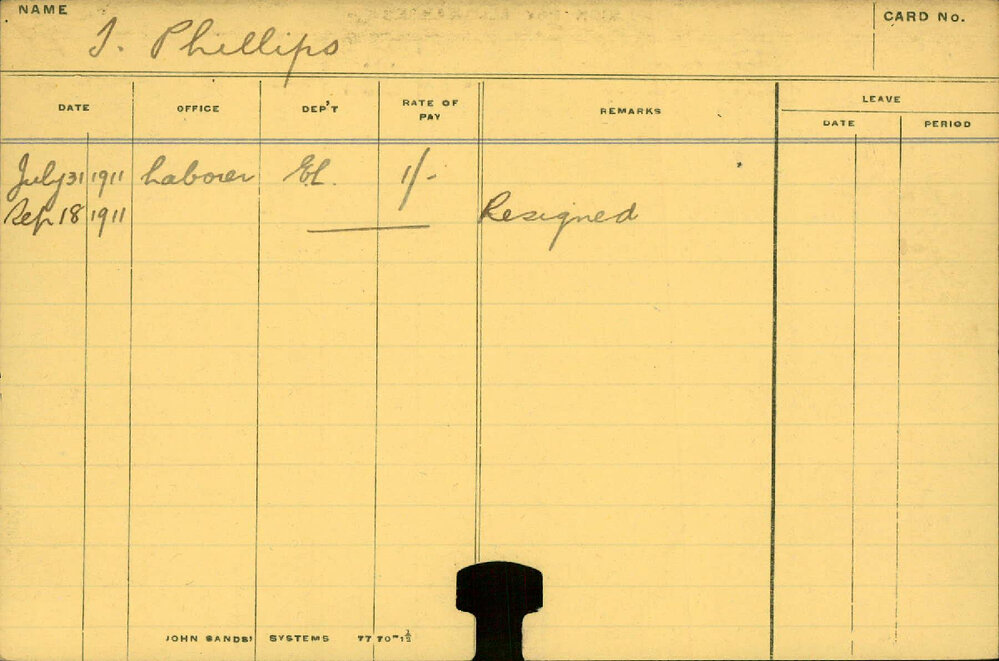 NAME
J. Phillips
CARD No.
DATE OFFICE DEP'T RATE OF PAY REMARKS LEAVE
DATE PERIOD
July 31 1911 Laborer El. 1/-
Sep 18 1911 Resigned
JOHN SANDS' SYSTEMS